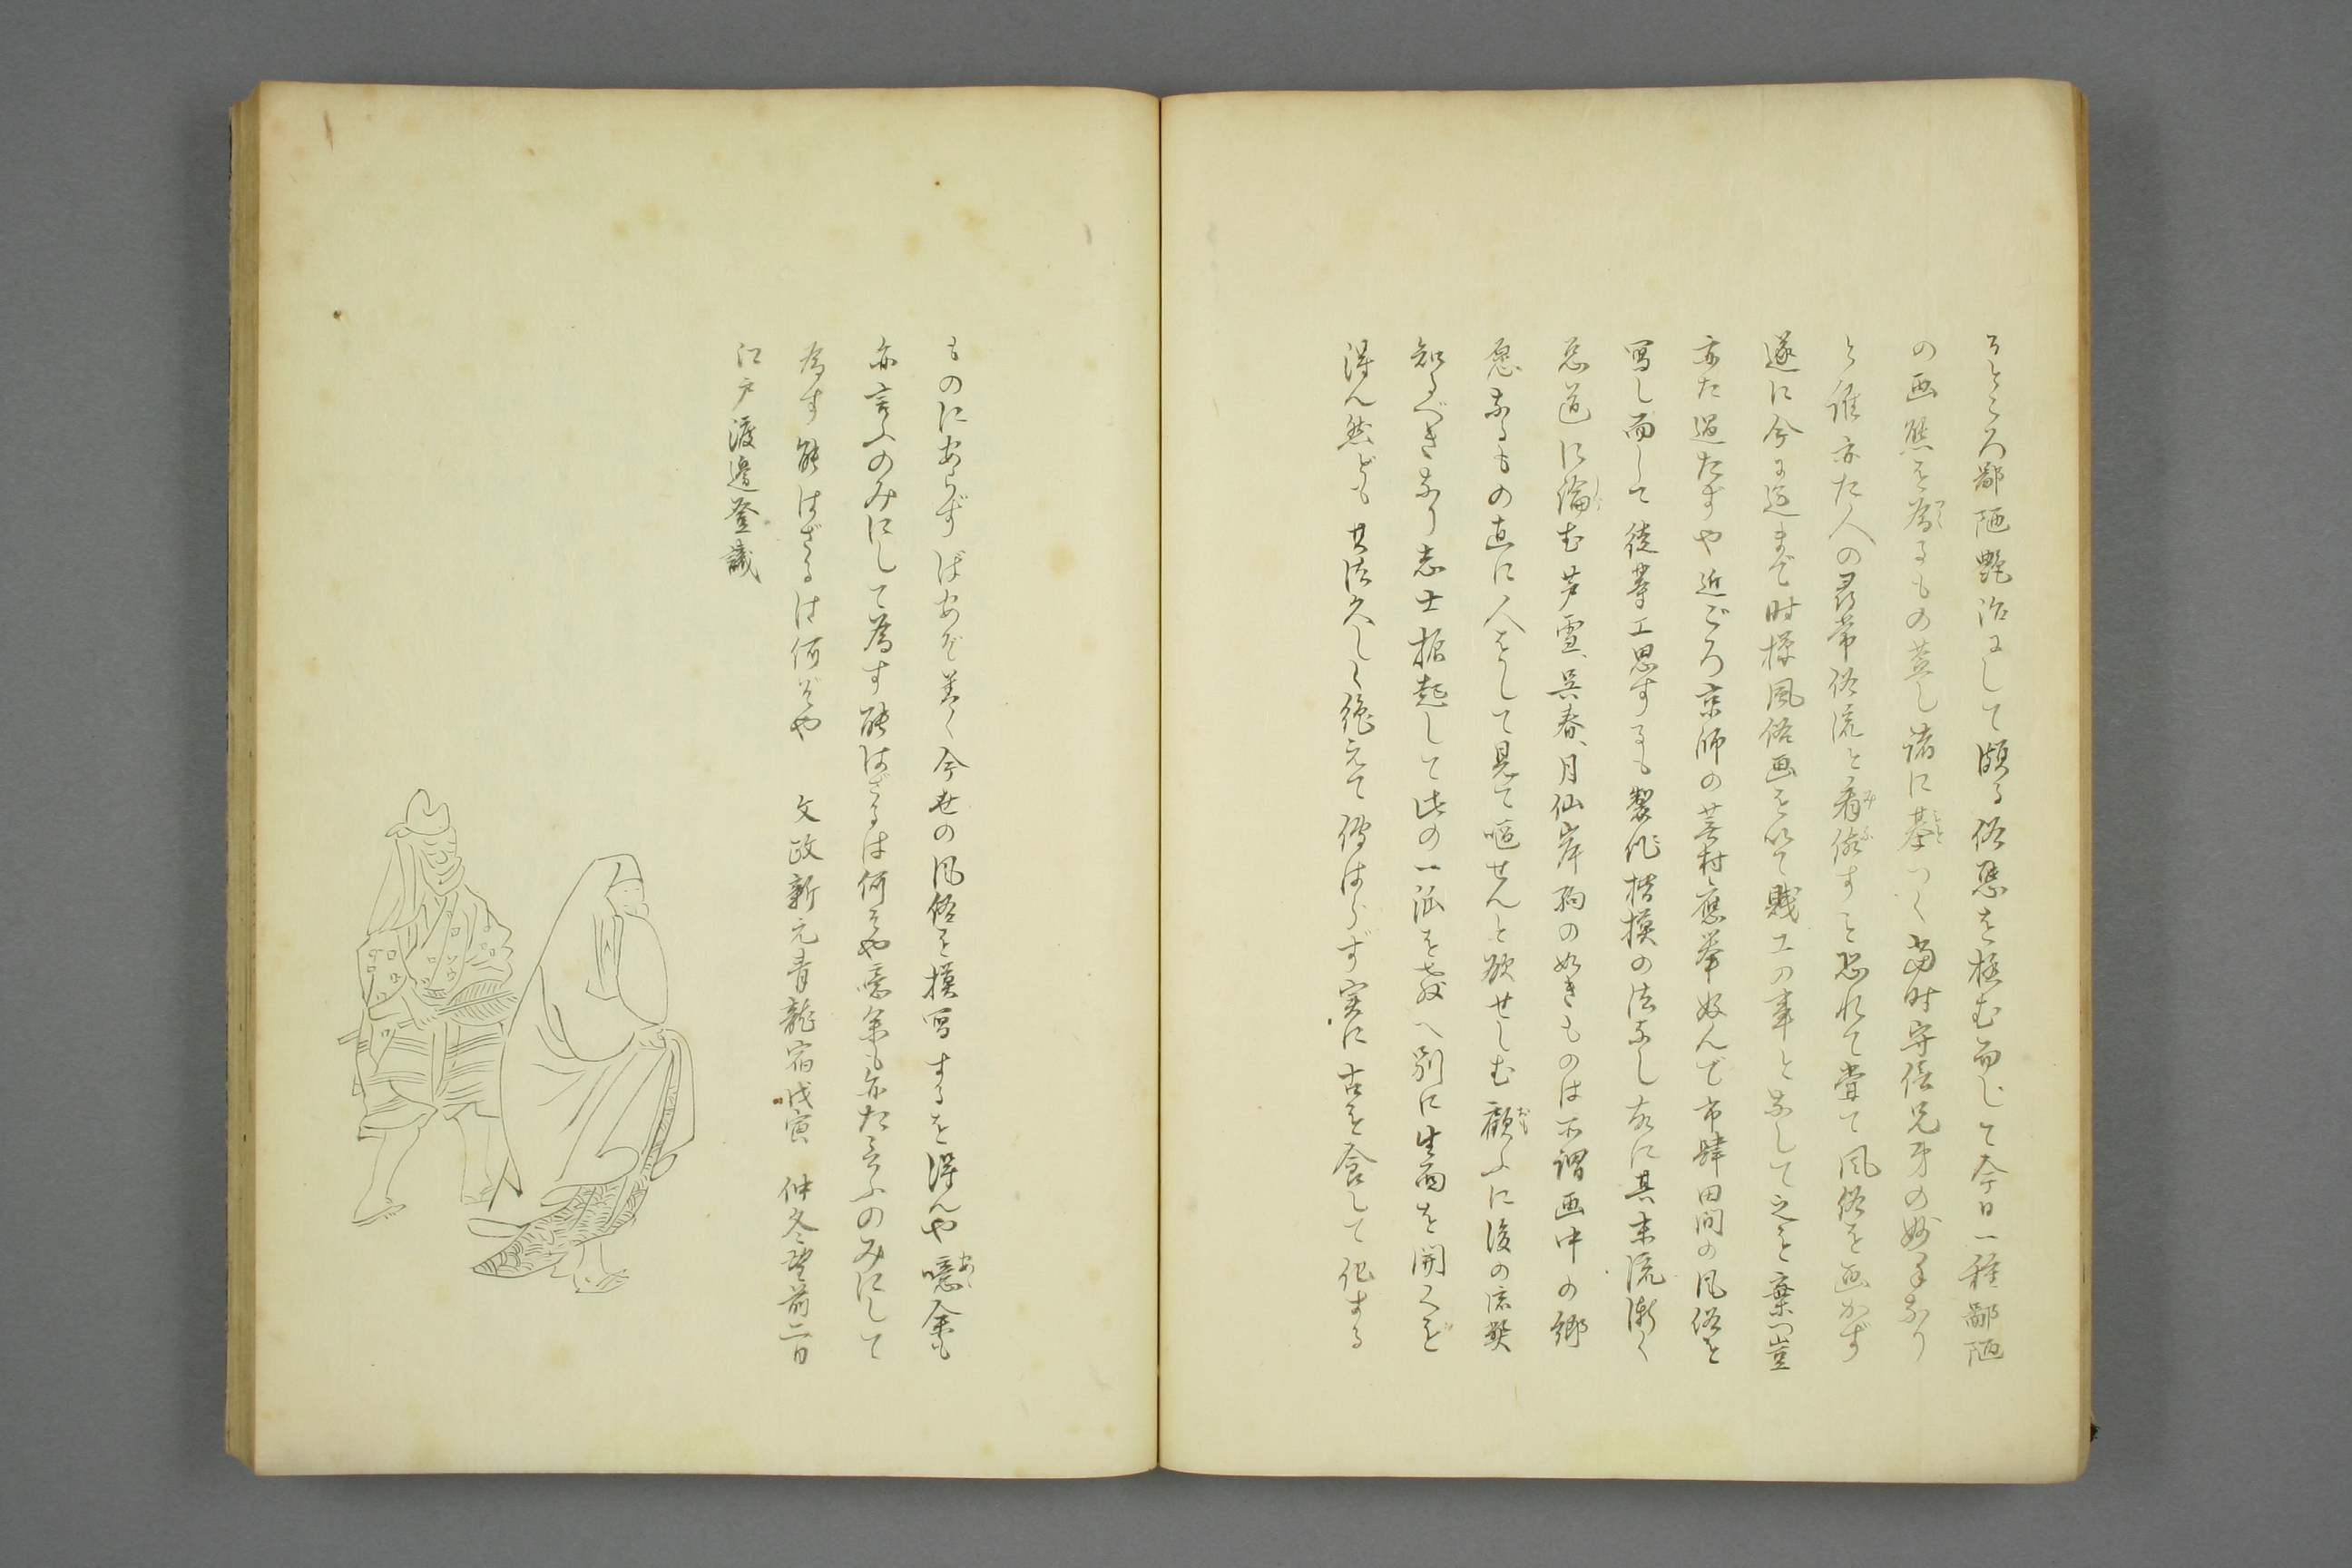 るところ鄙陋艶冶にして頗る俗悪を極む而して今日一種鄙陋
の画態を為るもの蓋し諸に基つく当時守信兄弟の妙手なり
と雖亦た人の尋常俗流と看做すを恐れて嘗て風俗を画かず
遂に今に迄まで時様風俗画を以て賤工の事となして之を棄つ豈
亦た過たずや近ごろ京師の蕪村應挙好んで市肆田間の風俗を
写し而して徒葦工思するも製作楷模の法なし故に其末流漸く
悪道に淪む芦雪、呉春、月仙岸駒の如きものは所謂画中の郷
愿なるもの直に人をして見て嘔せんと欲せしむ顧ふに後の流弊
知るべきなり志士振起して此の一派を救へ別に生面を開くを
得ん然ども其法久しく絶えて傳はらず実に古を食して化する
ものにあらずばあぞ善く今世の风俗を模写するを得んや噫余も
亦言ふのみにして為す能はざるは何ぞや噫余も亦た言ふのみにして
為す能はざるは何ぞや 文政新元青龍宿戊寅 仲冬望前二日
江戸渡邉登識